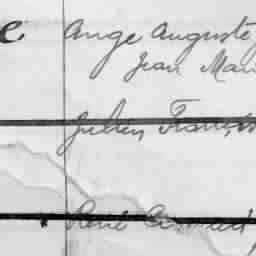 e Ange Auguste
Jean Mari
Julien François
René